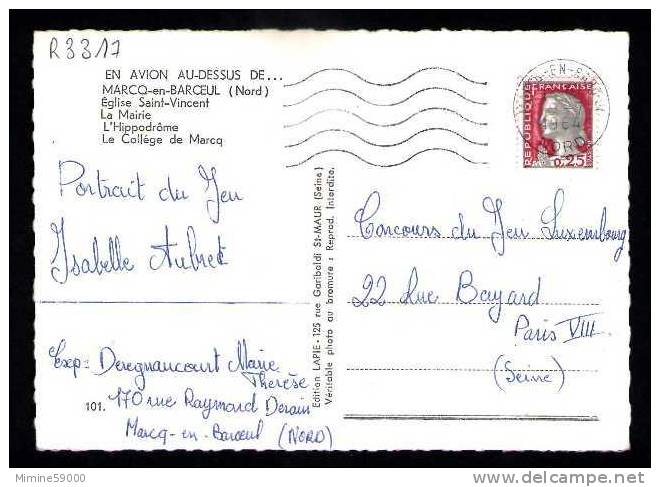 R3317
EN AVION AU-DESSUS DE...
MARCQ-en-BARŒUL (Nord)
Église Saint-Vincent
La Mairie
L'Hippodrôme
Le Collége de Marcq
REPUBLIQUE
FRANÇAISE
0,25
NORD
Portrait du Jeu
Isabelle Aubret
Exp: Deregnaucourt Marie
Therèse
170 rue Raymond Derain
Marcq-en-Barœul (NORD)
101.
Edition LAPIE - 125 rue Garibaldi St-MAUR (Seine)
Véritable photo au bromure : Reprod. Interdite.
Concours du Jeu Luxembourg
22 Rue Bayard
Paris VIII
(Seine)
Mimine59000
delcampe.net